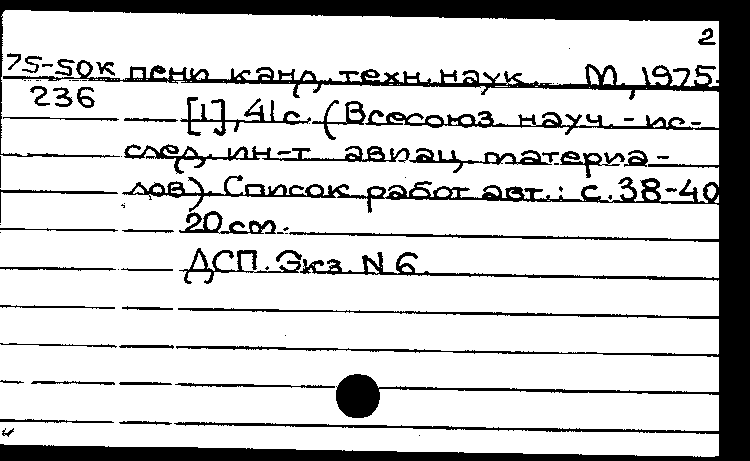 2
75-50к пени канд. техн. наук. М., 1975.
236 [1], 41 с. (Всесоюз. науч.-ис-
след. ин-т авиац. материа-
лов). Список работ авт.: с. 38-40
20 см.
ДСП. Экз. N 6.